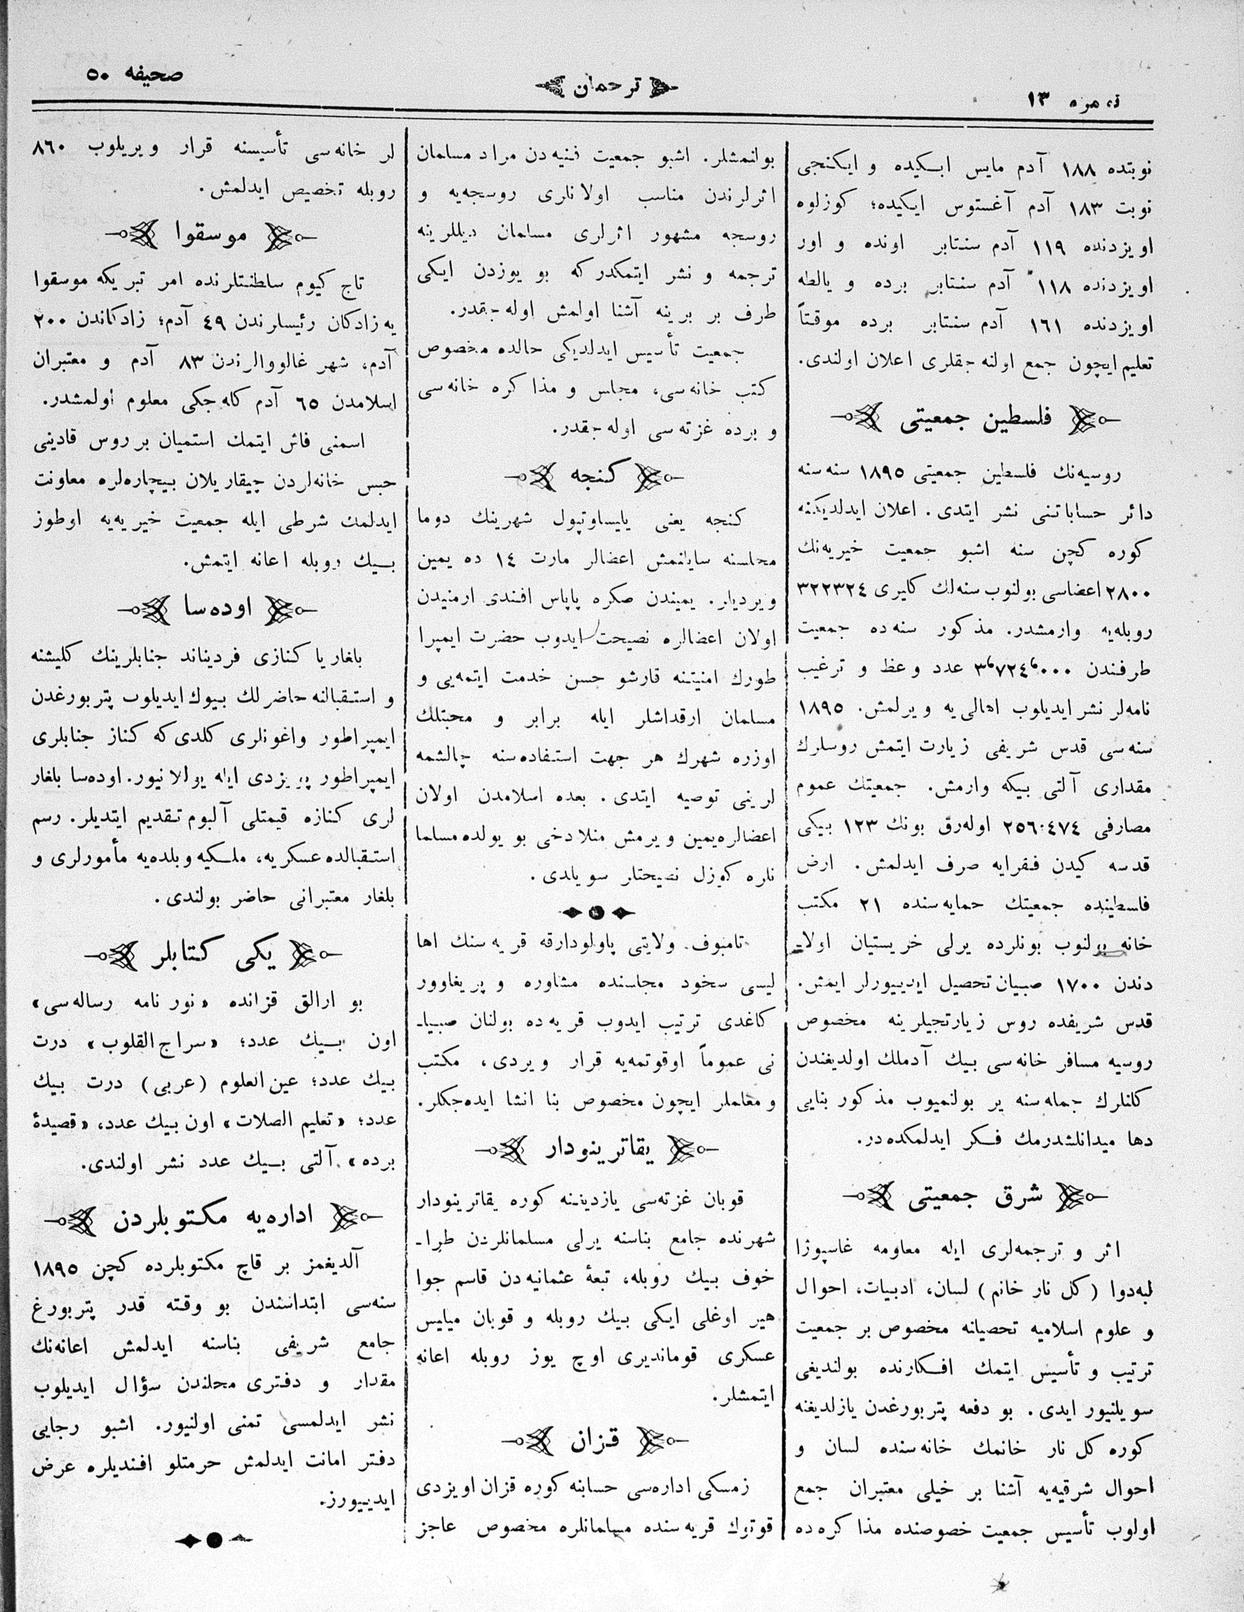 نومره ١٣
ترجمان
صحيفه ٥٠
نوبتده ١٨٨ آدم مايس ايكيده و ايكنجى
نوبت ١٨٣ آدم آغستوس ايكيده؛ كوزلوه
اويزدنده ١١٩ آدم سنتابر اونده و اور
اويزدنده ١١٨ آدم سنتابر برده و يالطه
اويزدنده ١٦١ آدم سنتابر برده موقتاً
تعليم ايچون جمع اولنه جقلرى اعلان اولندى.
فلسطين جمعيتى
روسيه‌نك فلسطين جمعيتى ١٨٩٥ سنه سنه
دائر حساباتنى نشر ايتدى. اعلان ايدلديكنه
كوره كچن سنه اشبو جمعيت خيريه‌نك
٢٨٠٠ اعضاسى بولنوب سنه‌لك كليرى ٣٢٢٣٢٤
روبله‌يه وارمشدر. مذكور سنه ده جمعيت
طرفندن ٣٬٧٢٤٬٠٠٠ عدد وعظ و ترغيب
نامه‌لر نشر ايديلوب اهالى‌يه ويرلمش. ١٨٩٥
سنه سى قدس شريفى زيارت ايتمش روسلرك
مقدارى آلتى بيكه وارمش. جمعيتك عموم
مصارفى ٢٥٦٠٤٧٤ اوله‌رق بونك ١٢٣ بيكى
قدسه كيدن فقرايه صرف ايدلمش. ارض
فلسطينده جمعيتك حمايه سنده ٢١ مكتب
خانه بولنوب بونلرده يرلى خريستيان اولا-
دندن ١٧٠٠ صبيان تحصيل ايدييورلر ايمش.
قدس شريفده روس زيارتجيلرينه مخصوص
روسيه مسافر خانه سى بيك آدملك اولديغندن
كلنلرك جمله سنه ير بولنميوب مذكور بنايى
دها ميدانلشدرمك فكر ايدلمكده در.
شرق جمعيتى
اثر و ترجمه‌لرى ايله معلومه غاسپوژا
لبه‌دوا (كل نار خانم) لسان، ادبيات، احوال
و علوم اسلاميه تحصيلنه مخصوص بر جمعيت
ترتيب و تأسيس ايتمك افكارنده بولنديغى
سويلنيور ايدى. بو دفعه پتربورغدن يازلديغنه
كوره كل نار خانمك خانه سنده لسان و
احوال شرقيه‌يه آشنا بر خيلى معتبران جمع
اولوب تأسيس جمعيت خصوصنده مذاكره ده
بولنمشلر. اشبو جمعيت فنيه دن مراد مسلمان
اثرلرندن مناسب اولانلرى روسجه‌يه و
روسجه مشهور اثرلرى مسلمان ديللرينه
ترجمه و نشر ايتمكدركه بو يوزدن ايكى
طرف بر برينه آشنا اولمش اوله جقدر.
جمعيت تأسيس ايدلديكى حالده مخصوص
كتب خانه سى، مجلس و مذاكره خانه سى
و برده غزته سى اوله جقدر.
كنجه
كنجه يعنى يليساوتپول شهرينك دوما
مجلسنه سايلنمش اعضالر مارت ١٤ ده يمين
ويرديلر. يميندن صكره پاپاس افندى ارمنيدن
اولان اعضالره نصيحت ايدوب حضرت ايمپرا
طورك امنيتنه قارشو حسن خدمت ايتمه‌يى و
مسلمان ارقداشلر ايله برابر و محبتلك
اوزره شهرك هر جهت استفاده سنه چالشمه
لرينى توصيه ايتدى. بعده اسلامدن اولان
اعضالره يمين ويرمش منلا دخى بو يولده مسلما
نلره كوزل نصيحتلر سويلدى.
تامبوف ولايتى پاولودارقه قريه سنك اها
ليسى سخود مجلسنده مشاوره و پريغاوور
كاغدى ترتيب ايدوب قريه ده بولنان صبيا-
نى عموماً اوقوتمه‌يه قرار ويردى، مكتب
و معلملر ايچون مخصوص بنا انشا ايده‌جكلر.
يقاترينودار
قوبان غزته سى يازديغنه كوره يقاترينودار
شهرنده جامع بناسنه يرلى مسلمانلردن طرا-
خوف بيك روبله، تبعهٔ عثمانيه دن قاسم جوا
هير اوغلى ايكى بيك روبله و قوبان ميليس
عسكرى قومانديرى اوچ يوز روبله اعانه
ايتمشلر.
قزان
زمسكى اداره سى حسابنه كوره قزان اويزدى
قوترك قريه سنده مسلمانلره مخصوص عاجز
لر خانه سى تأسيسنه قرار ويريلوب ٨٦٠
روبله تخصيص ايدلمش.
موسقوا
تاج كيوم سلطنتلرنده امر تبريكه موسقوا
يه زادكان رئيسلرندن ٤٩ آدم؛ زادكاندن ٢٠٠
آدم، شهر غالووالرندن ٨٣ آدم و معتبران
اسلامدن ٦٥ آدم كله جكى معلوم اولمشدر.
اسمنى فاش ايتمك استميان بر روس قادينى
حبس خانه‌لردن چيقاريلان بيچاره‌لره معاونت
ايدلمك شرطى ايله جمعيت خيريه‌يه اوطوز
بيك روبله اعانه ايتمش.
اوده‌سا
بلغاريا كنازى فرديناند جنابلرينك كليشنه
و استقبالنه حاضرلك بيوك ايديلوب پتربورغدن
ايمپراطور واغونلرى كلدى كه كناز جنابلرى
ايمپراطور پويزدى ايله يوللانيور. اوده‌سا بلغار
لرى كنازه قيمتلى آلبوم تقديم ايتديلر. رسم
استقبالده عسكريه، ملكيه و بلديه مأمورلرى و
بلغار معتبرانى حاضر بولندى.
يكى كتابلر
بو ارالق قزانده «نور نامه رساله سى»
اون بيك عدد؛ «سراج القلوب» درت
بيك عدد؛ عين العلوم (عربى) درت بيك
عدد؛ «تعليم الصلات» اون بيك عدد، «قصيدهٔ
برده» آلتى بيك عدد نشر اولندى.
اداره‌يه مكتوبلردن
آلديغمز بر قاچ مكتوبلرده كچن ١٨٩٥
سنه سى ابتداسندن بو وقته قدر پتربورغ
جامع شريفى بناسنه ايدلمش اعانه‌نك
مقدار و دفترى محلندن سؤال ايديلوب
نشر ايدلمسى تمنى اولنيور. اشبو رجايى
دفتر امانت ايدلمش حرمتلو افنديلره عرض
ايدييورز.